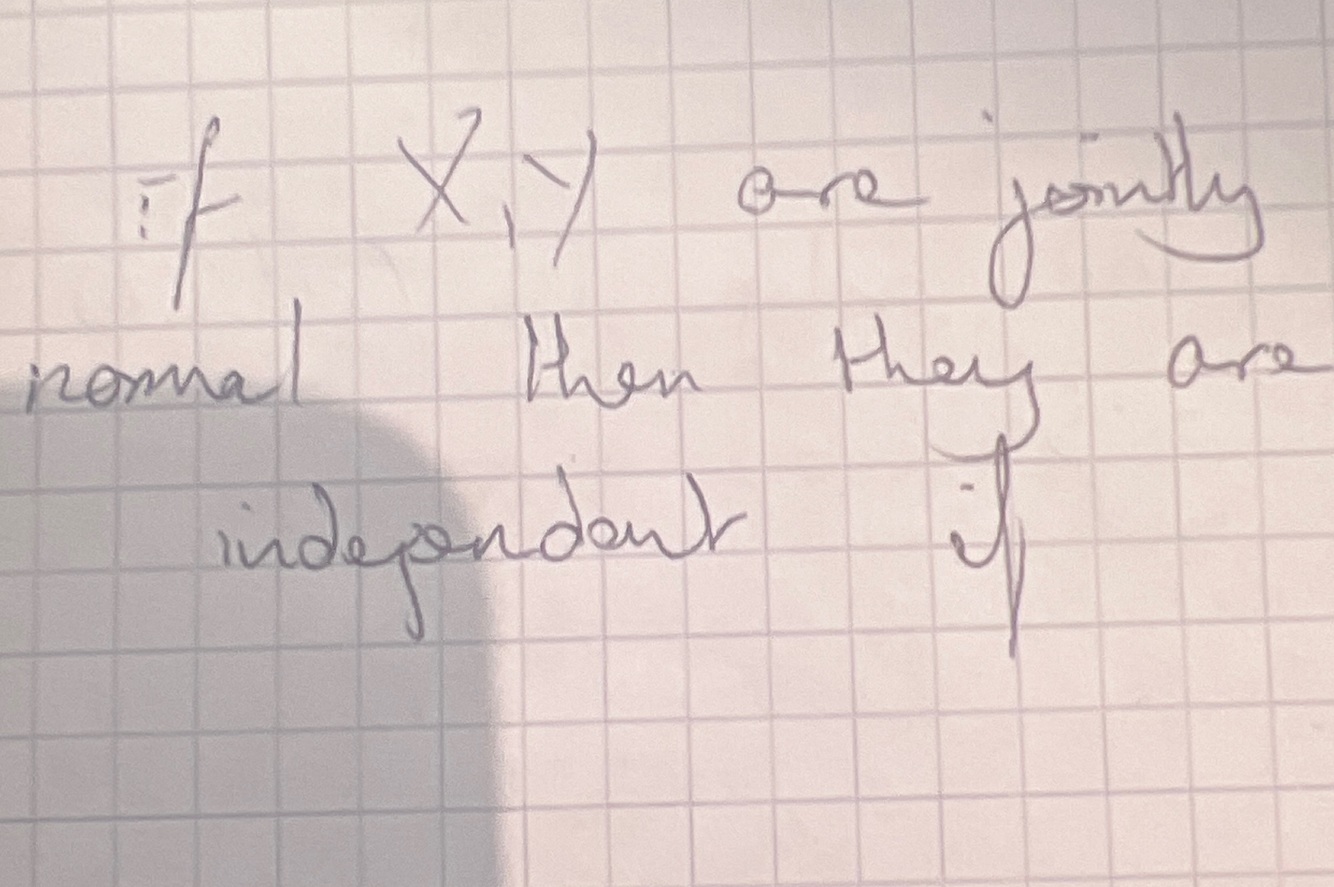 if X, Y are jointly
normal then they are
independent if